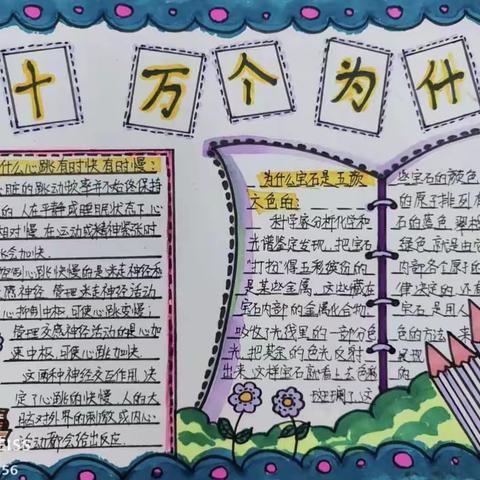 十万个为什
什么心跳有时快有时慢：
心脏的跳动频率并不始终保持
的 人在平静或睡眠状态下心
相对慢 在运动或精神紧张时
会加快
控制心跳快慢的是迷走神经和
感神经 管理迷走神经活动
心抑制中枢 可使心跳变慢；
管理交感神经活动的是心加
速中枢 可使心跳加快
这两种神经交互作用 决
定了心跳的快慢 人的大
脑对外界的刺激或内心
活动都会给出反应
为什么宝石是五颜
六色的：
科学家分析化学和
光谱鉴定发现，把宝石
"打扮"得五彩缤纷的
是某些金属 这些藏在
宝石内部的金属化合物
吸收了光线里的一部分色
光 把其余的色光反射
出来 这样宝石就看上去色彩
斑斓了 这
些宝石的颜色
的原子排列有
石的蓝色 翠
绿色 就是由
内部各个原子的
律决定的 还有
宝石是用人
色的方法 来
呈现
的
56